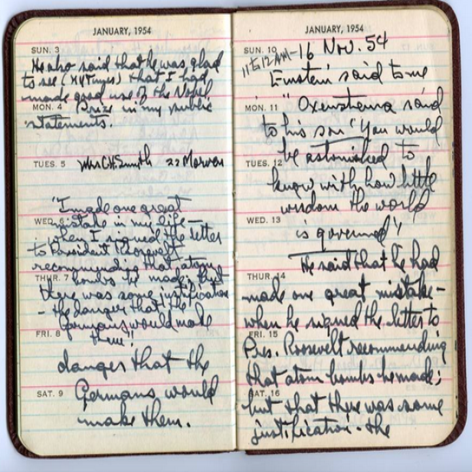 JANUARY, 1954
SUN. 3
He also said that he was glad
to see (NYTimes) that I had
made good use of the Nobel
MON. 4
Prize in my public
statements.
TUES. 5
Mrs CH Smith 22
"I made one great
WED. 6
mistake in my life—
when I signed the letter
to President Roosevelt
recommending that atom
THUR. 7
bombs be made; but
there was some justification
— the danger that the
Germans would make
FRI. 8
them!"
danger that the
Germans would
SAT. 9
make them.
JANUARY, 1954
SUN. 10
11 AM - 16 Nov. 54
Einstein said to me
MON. 11
"Oxenstierna said
to his son "You would
be astonished to
TUES. 12
know with how little
wisdom the world
WED. 13
is governed"
He said that he had
THUR. 14
made one great mistake—
when he signed the letter to
FRI. 15
Pres. Roosevelt recommending
that atom bombs be made;
SAT. 16
but that there was some
justification - the